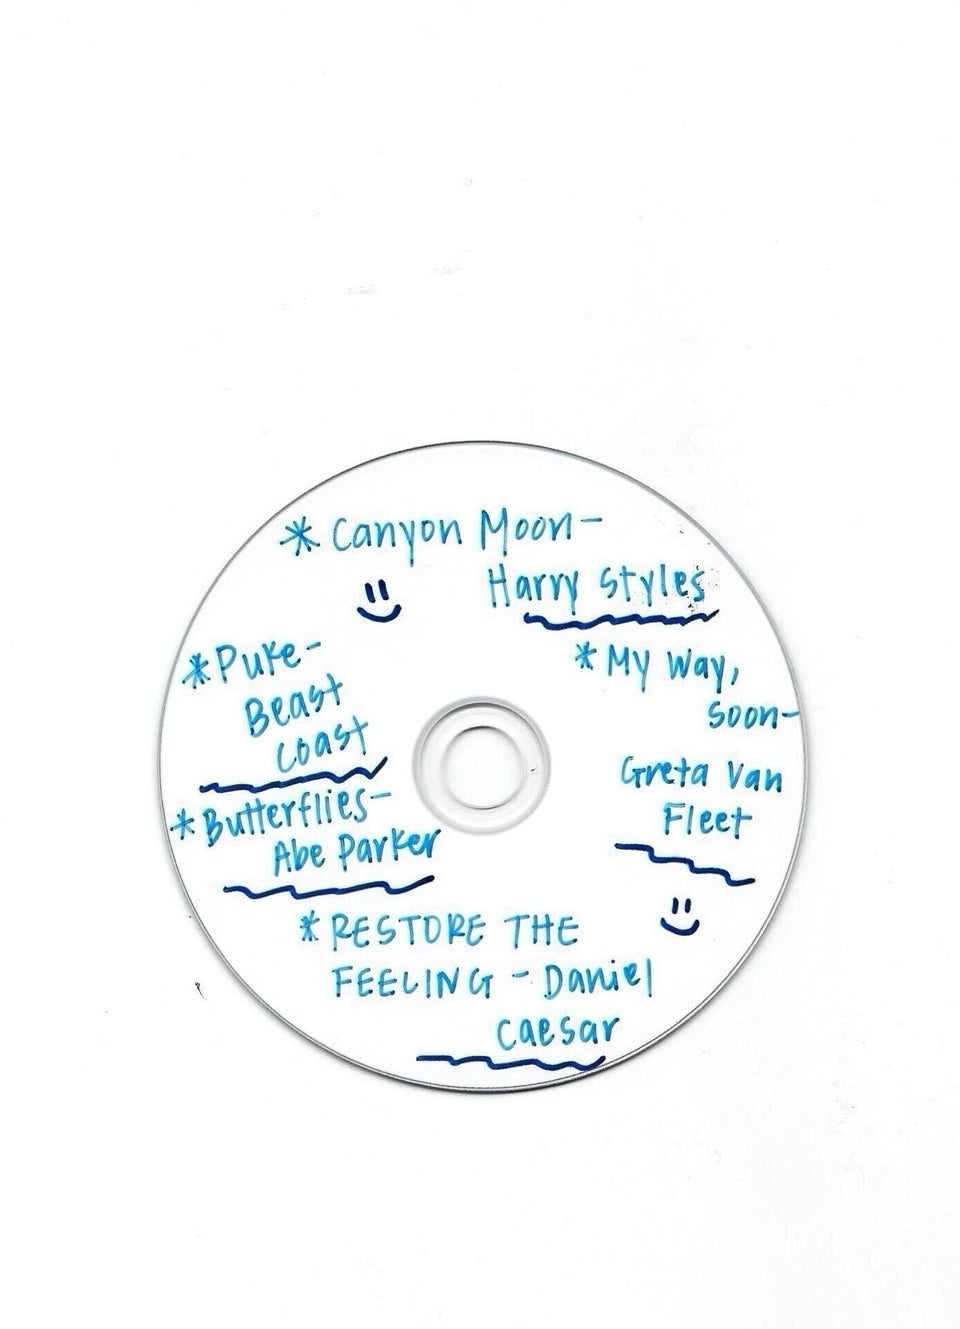 * Canyon Moon-
Harry Styles
* Puke-
Beast
Coast
* Butterflies-
Abe Parker
* My Way,
Soon-
Greta Van
Fleet
* RESTORE THE
FEELING - Daniel
Caesar